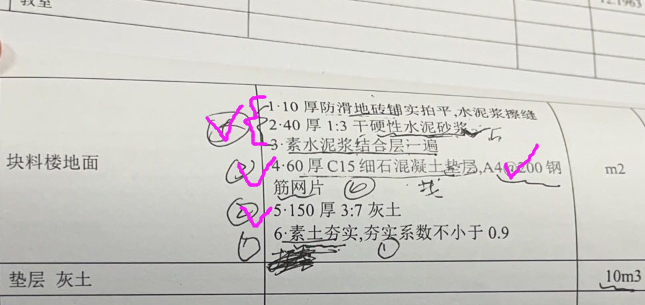 教室
12.1963
1·10 厚防滑地砖铺实拍平,水泥浆擦缝
2·40 厚 1:3 干硬性水泥砂浆
3·素水泥浆结合层一遍
块料楼地面
4·60 厚 C15 细石混凝土垫层,A4@200 钢
筋网片
m2
5·150 厚 3:7 灰土
6·素土夯实,夯实系数不小于 0.9
垫层 灰土
10m3